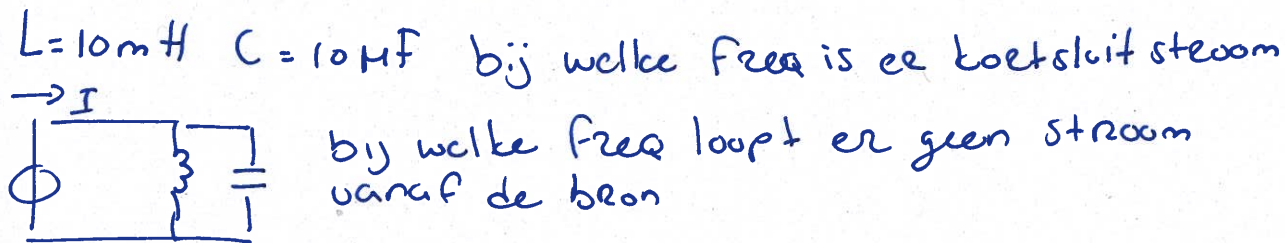 L=10mH C=10µF bij welke freq is er kortsluit stroom
→ I
bij welke freq loopt er geen stroom
vanaf de bron